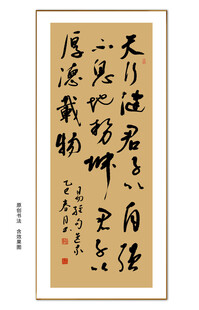 天行健君子以自强
不息地势坤君子以
厚德載物
易经句
乙巳春月书
原创书法 含效果图